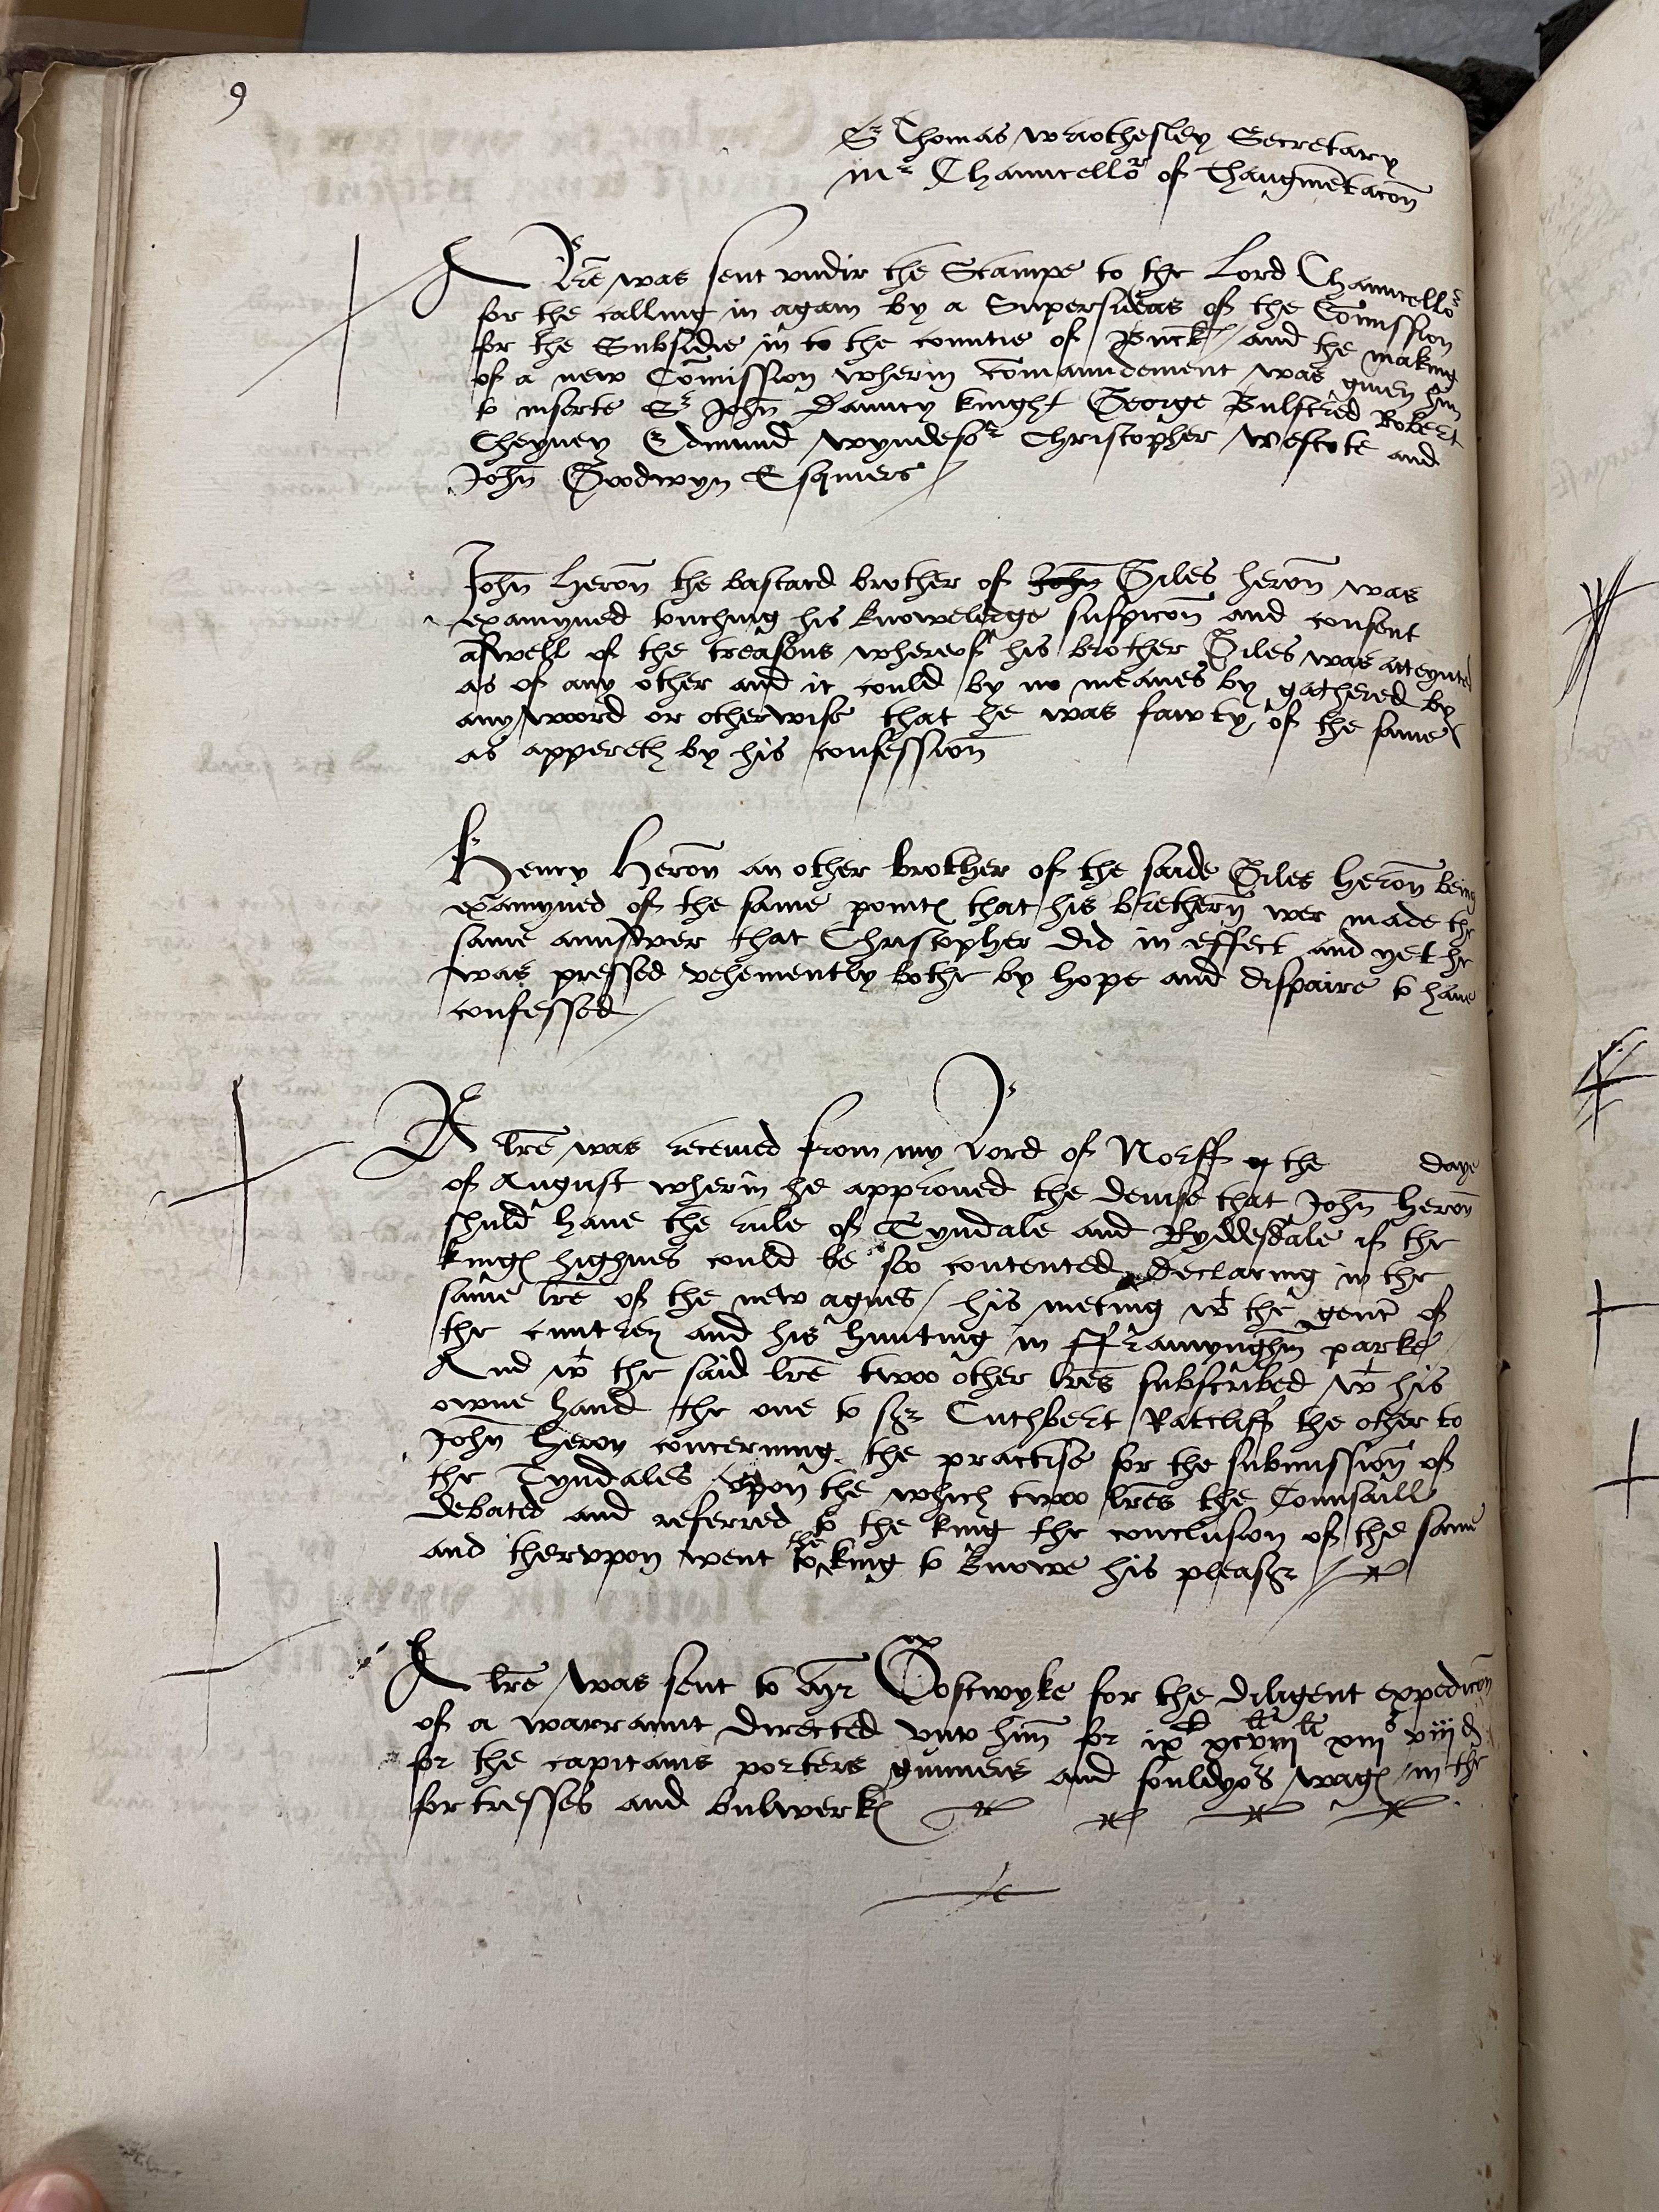 9
Sr Thomas wriothesley Secretary
mr Chauncellor of Thaugmētacōn
A lre was sent vndir the Stampe to the Lord Chauncellor
for the calling in again by a Supersideas of the Cōmission
for the Subsidie in to the countie of Buck and the making
of a new Cōmission wherin cōmaundement was giuen him
to inserte Sr John Dauncy knight George Bulstred Robert
Cheyney Edmund wyndesor Christopher Westcote and
John Goodwyn Esquiers
John Heron the bastard brother of John Giles Heron was
examyned touching his knowelege suspicon and consent
aswell of the treasons whereof his brother Giles was atteynted
as of any other and it could by no meanes by gathered by
any word or otherwise that he was fawty of the same
as appereth by his confession
Henry Heron an other brother of the saide Giles Heron being
examyned of the same points that his brethern wer made the
same aunswer that Christopher did in effect and yet he
was pressed vehemently bothe by hope and dispaire to haue
confessed
A lre was receiued from my Lord of Norff the daye
of August wherin he approued the deuise that John Heron
shuld haue the rule of Tyndale and Ryddesdale if the
kings highnes could be so contented declaring in the
same lre of the new agues his meting wt the gent of
the cuntrey and his hunting in fframynghm parke
And wt the said lre twoo other lres subscribed wt his
owne hand the one to sr Cuthbert Ratcliff the other to
John Heron concerning the practise for the submission of
the Tyndales vpon the which twoo lres the Counsaill
debated and referred to the king the conclusion of the same
and thervpon went to the king to knowe his pleasr
A lre was sent to Gostwyke for the diligent expedicōn
of a warraunt directed vnto him for ix c xcviij li xiij s viij d
for the capitains porters gunners and souldyors wags in the
fortresses and bulwerks